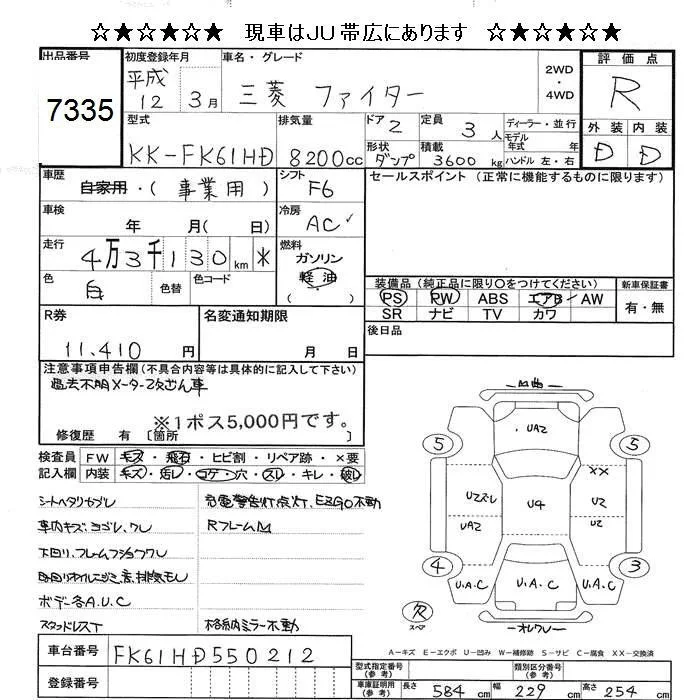 ☆★☆★☆★ 現車はJU帯広にあります ☆★☆★☆★
出品番号
7335
初度登録年月
平成
12 3月
車名・グレード
三菱 ファイター
2WD
・
4WD
評価点
R
型式
KK-FK61HD
排気量
8200cc
ドア 2
定員 3人
ディーラー・並行
モデル
年式 年
形状 ダンプ
積載 3600kg
ハンドル 左・右
外装 内装
D D
車歴
自家用・(事業用)
シフト
F6
セールスポイント (正常に機能するものに限ります)
車検
年 月( 日)
冷房
AC✓
走行
4万3千130km *
燃料
ガソリン
軽油
( )
色
白
色替
色コード
装備品(純正品に限り○をつけてください)
PS PW ABS エアB AW
SR ナビ TV カワ
新車保証書
有・無
R券
11,410円
名変通知期限
月 日
後日品
注意事項申告欄(不具合内容等は具体的に記入して下さい)
過去不明メーター改ざん車
※1ポス5,000円です。
修復歴 有 〔箇所
検査員
記入欄
FW キズ・飛石・ヒビ割・リペア跡・×要
内装 キズ・汚レ・コゲ・穴・スレ・キレ・破レ
シートヘタリセブレ
充電警告灯点灯、EZGO不動
車内キズ、ヨゴレ、ワレ
Rフレームm
下回リ、フレームフショクワレ
ボデー各A.U.C
スタッドレスT
格納ミラー不動
UA2
5 5
××
U2ズレ U4 U2
UA2 U2
4 3
U.A.C U.A.C U.A.C
欠
スペア
オレワレ
A－キズ E－エクボ U－凹み W－補修跡 S－サビ C－腐食 XX－交換済
車台番号
FK61HD550212
登録番号
型式指定番号
(参考)
類別区分番号
(参考)
車庫証明用
(参考)
長さ 584cm 幅 229cm 高さ 254cm